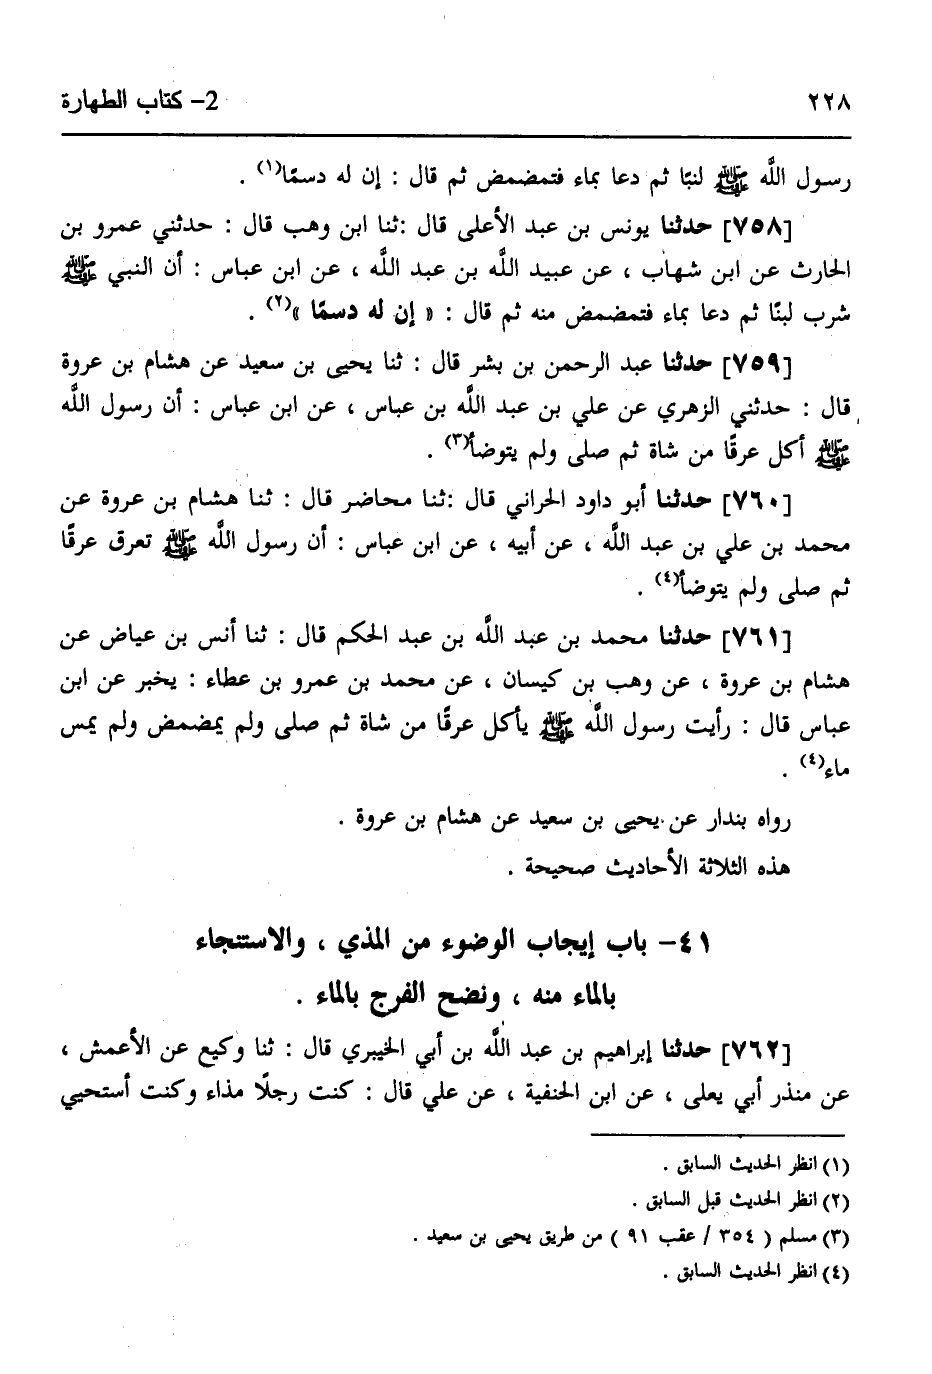 ٢٢٨ 2- كتاب الطهارة
رسول اللَّه ﷺ لنبًا ثم دعا بماء فتمضمض ثم قال : إن له دسمًا(١) .
[٧٥٨] حدثنا يونس بن عبد الأعلى قال :ثنا ابن وهب قال : حدثني عمرو بن
الحارث عن ابن شهاب ، عن عبيد اللَّه بن عبد اللَّه ، عن ابن عباس : أن النبي ﷺ
شرب لبنًا ثم دعا بماء فتمضمض منه ثم قال : « إن له دسمًا »(٢) .
[٧٥٩] حدثنا عبد الرحمن بن بشر قال : ثنا يحيى بن سعيد عن هشام بن عروة
قال : حدثني الزهري عن علي بن عبد اللَّه بن عباس ، عن ابن عباس : أن رسول اللَّه
ﷺ أكل عرقًا من شاة ثم صلى ولم يتوضأ(٣) .
[٧٦٠] حدثنا أبو داود الحراني قال :ثنا محاضر قال : ثنا هشام بن عروة عن
محمد بن علي بن عبد اللَّه ، عن أبيه ، عن ابن عباس : أن رسول اللَّه ﷺ تعرق عرقًا
ثم صلى ولم يتوضأ(٤) .
[٧٦١] حدثنا محمد بن عبد اللَّه بن عبد الحكم قال : ثنا أنس بن عياض عن
هشام بن عروة ، عن وهب بن كيسان ، عن محمد بن عمرو بن عطاء : يخبر عن ابن
عباس قال : رأيت رسول اللَّه ﷺ يأكل عرقًا من شاة ثم صلى ولم يمضمض ولم يمس
ماء(٤) .
رواه بندار عن يحيى بن سعيد عن هشام بن عروة .
هذه الثلاثة الأحاديث صحيحة .
٤١- باب إيجاب الوضوء من المذي ، والاستنجاء
بالماء منه ، ونضح الفرج بالماء .
[٧٦٢] حدثنا إبراهيم بن عبد اللَّه بن أبي الخيبري قال : ثنا وكيع عن الأعمش ،
عن منذر أبي يعلى ، عن ابن الحنفية ، عن علي قال : كنت رجلًا مذاء وكنت أستحيي
(١) انظر الحديث السابق .
(٢) انظر الحديث قبل السابق .
(٣) مسلم ( ٣٥٤ / عقب ٩١ ) من طريق يحيى بن سعيد .
(٤) انظر الحديث السابق .